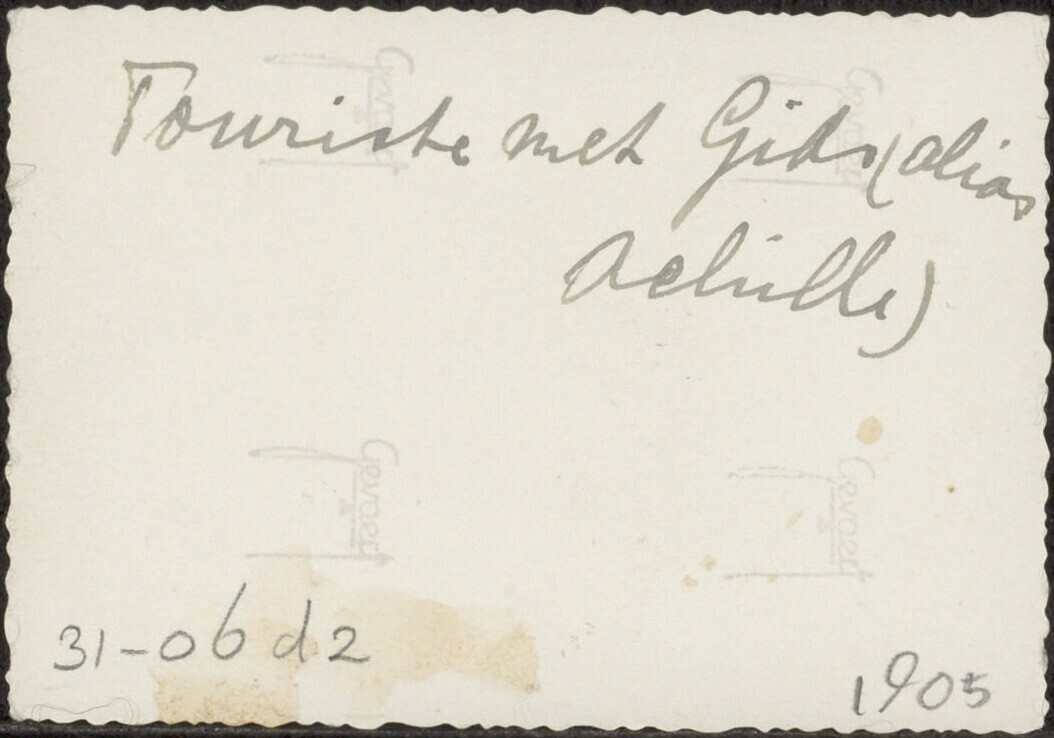 Touriste met Gids (alias
Achille)
Gevaert
Gevaert
Gevaert
Gevaert
31-06 d2
1905